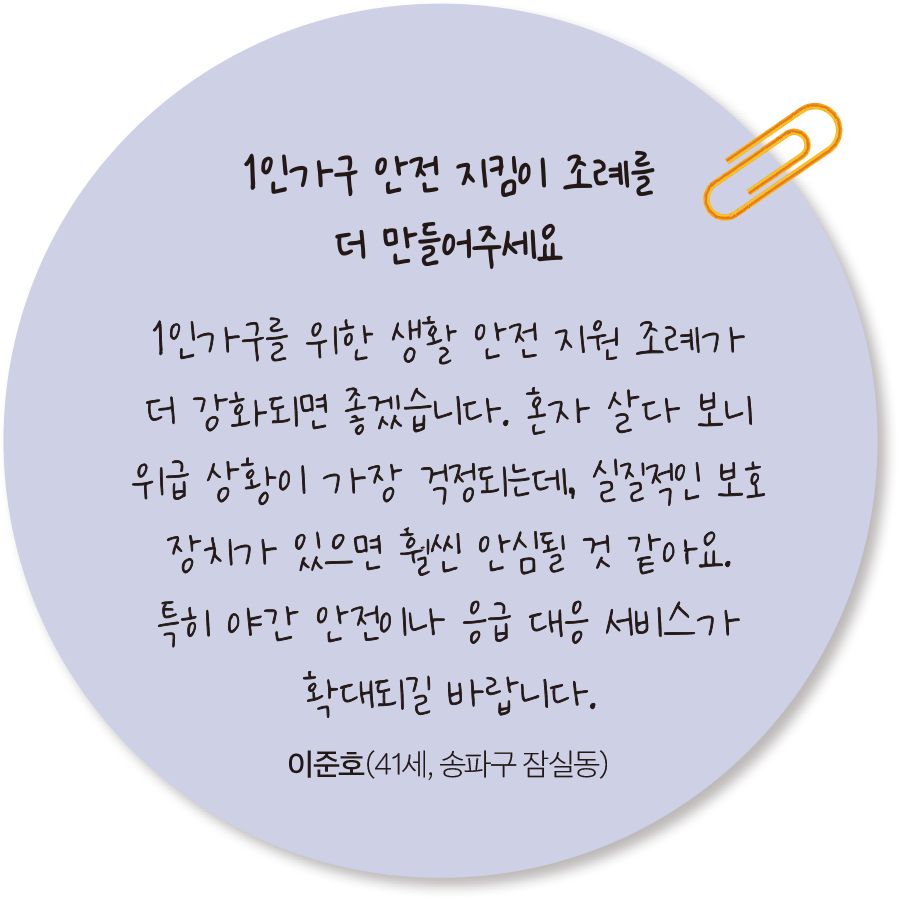 1인가구 안전 지킴이 조례를
더 만들어주세요
1인가구를 위한 생활 안전 지원 조례가
더 강화되면 좋겠습니다. 혼자 살다 보니
위급 상황이 가장 걱정되는데, 실질적인 보호
장치가 있으면 훨씬 안심될 것 같아요.
특히 야간 안전이나 응급 대응 서비스가
확대되길 바랍니다.
이준호(41세, 송파구 잠실동)